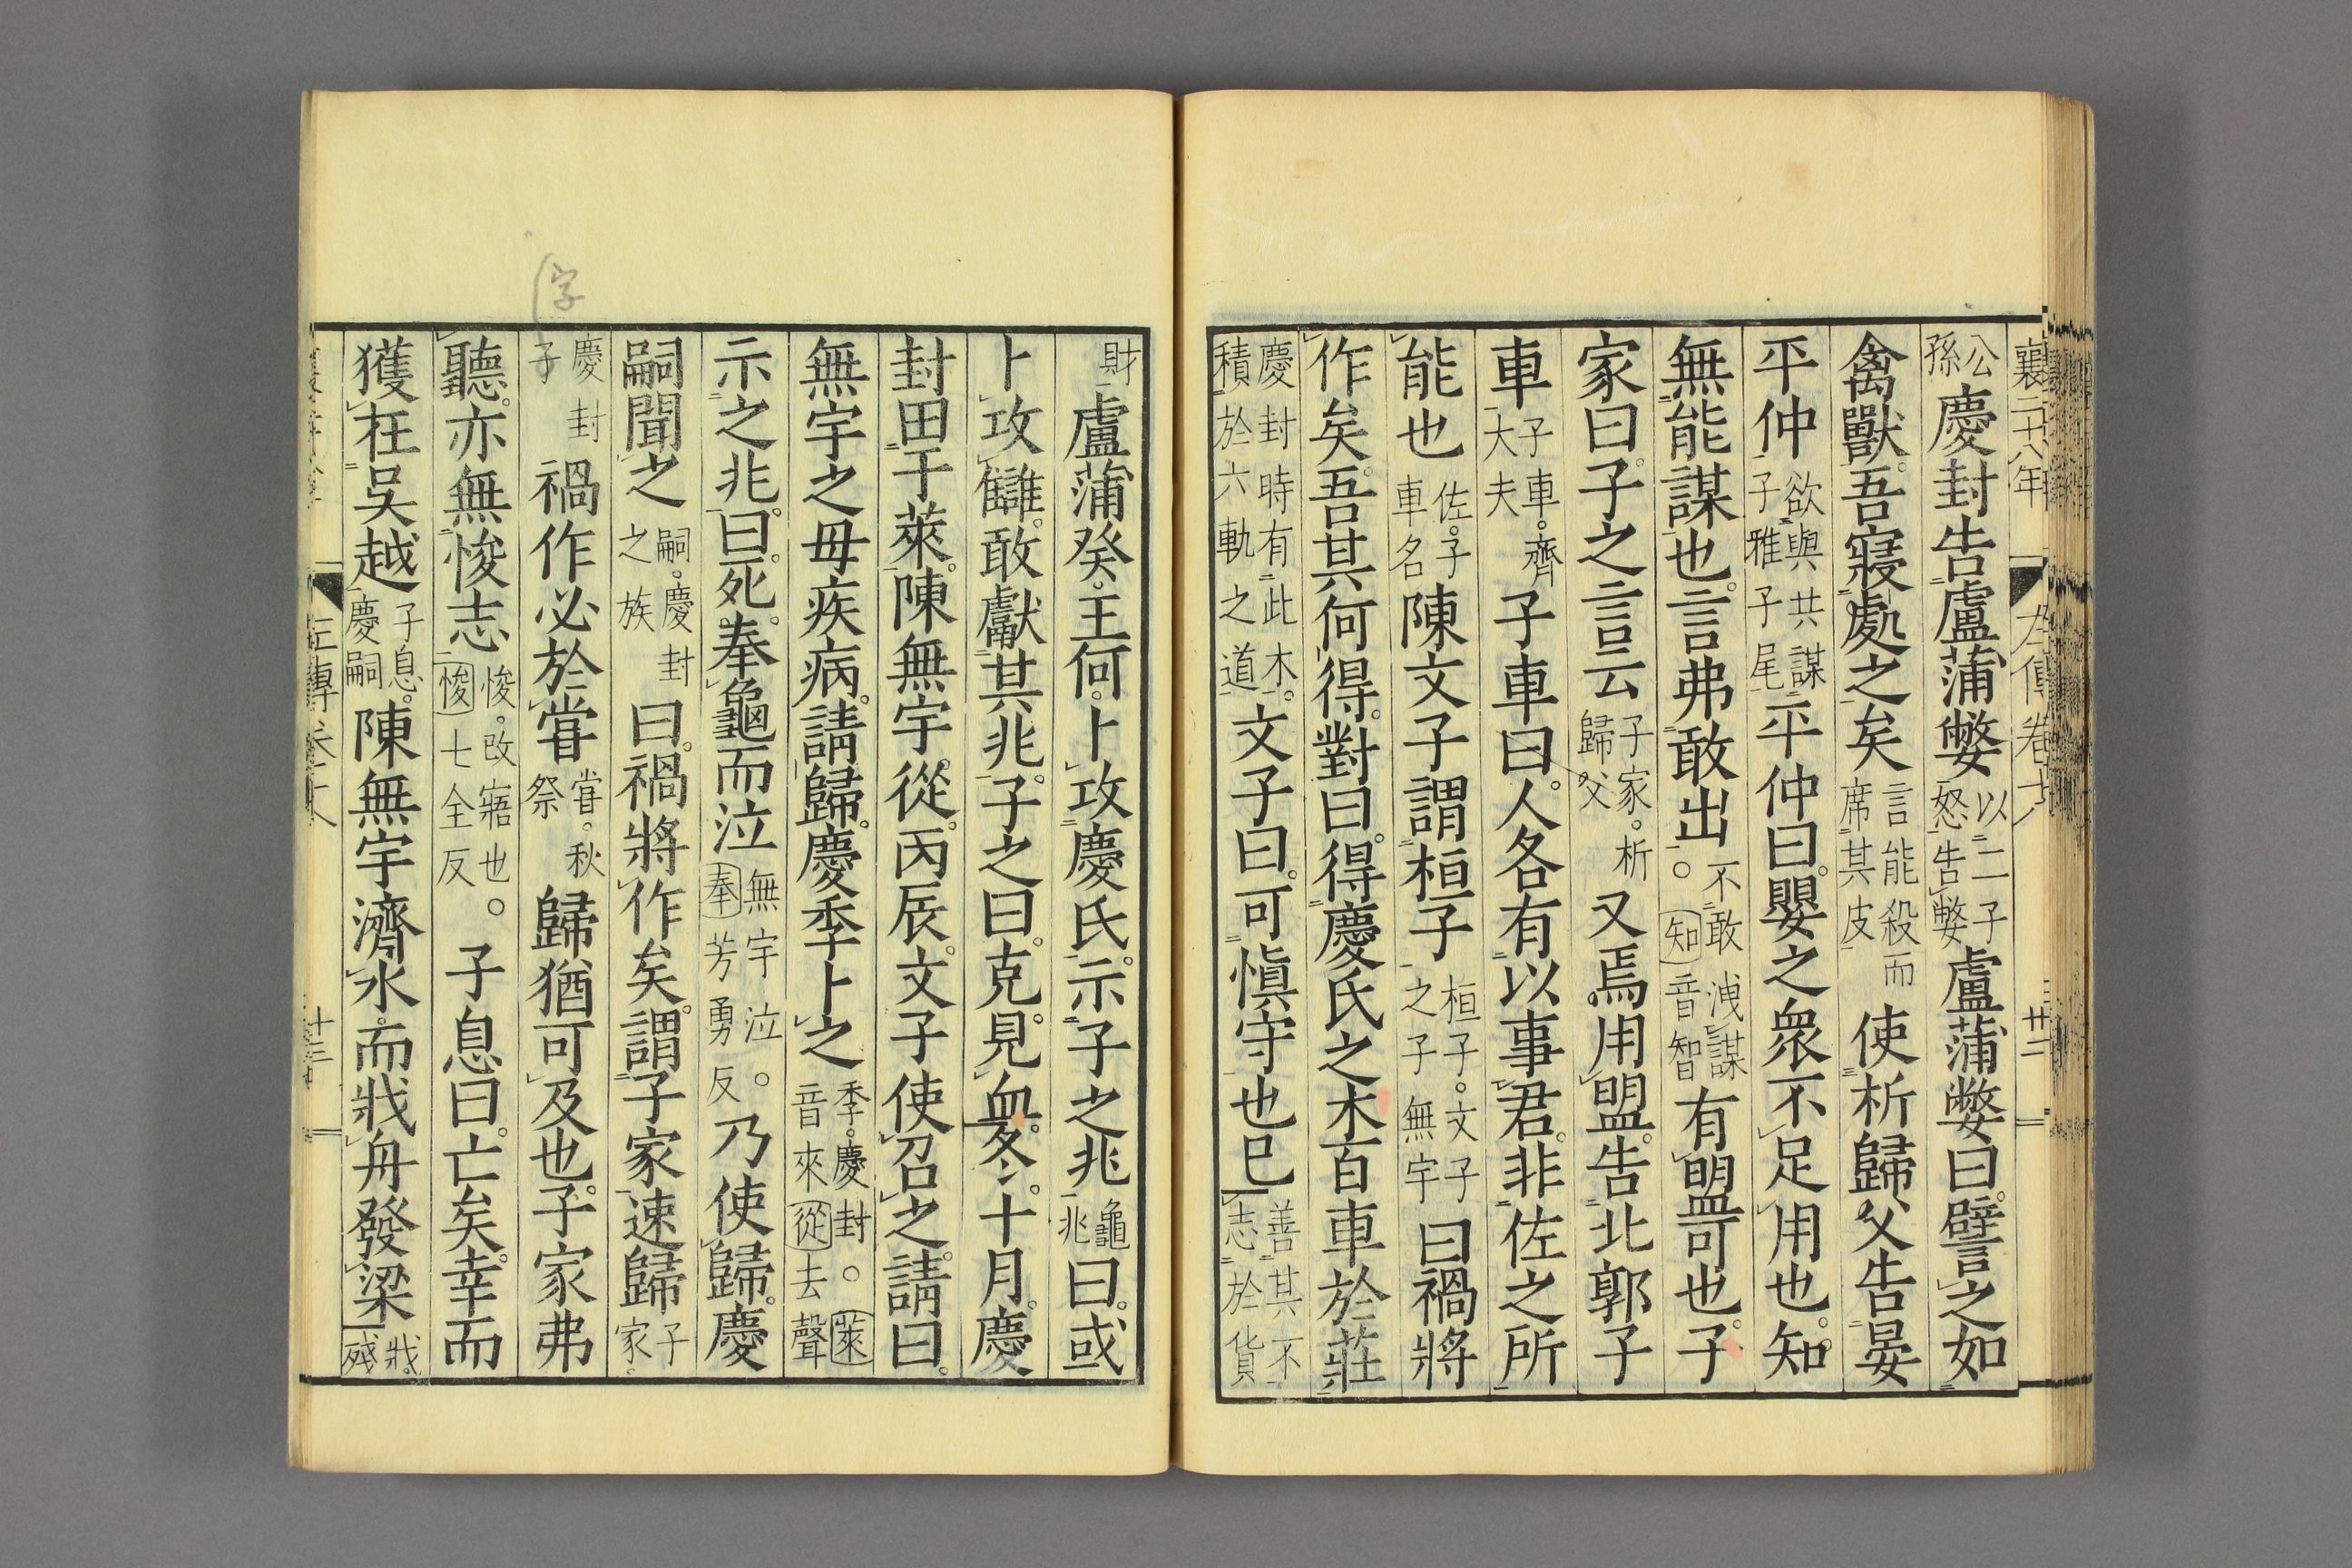 襄二十八年 左傳卷十八 廿二
公孫慶封告盧蒲嫳以二子怒告嫳盧蒲嫳曰譬之如
禽獸吾寢處之矣言能殺而席其皮使析歸父告晏
平仲欲與共謀子雅子尾平仲曰嬰之衆不足用也知
無能謀也言弗敢出不敢洩謀○知音智有盟可也子
家曰子之言云子家析歸父又焉用盟告北郭子
車子車齊大夫子車曰人各有以事君非佐之所
能也佐子車名陳文子謂桓子桓子文子之子無宇曰禍將
作矣吾其何得對曰得慶氏之木百車於莊
慶封時有此木積於六軌之道文子曰可慎守也已善其不志於貨
財盧蒲癸王何卜攻慶氏示子之兆龜兆曰或
卜攻讎敢獻其兆子之曰克見血冬十月慶
封田于萊陳無宇從丙辰文子使召之請曰
無宇之母疾病請歸慶季卜之季慶封○萊音來從去聲
示之兆曰死奉龜而泣無宇泣○奉芳勇反乃使歸慶
嗣聞之嗣慶封之族曰禍將作矣謂子家速歸子家
慶封子禍作必於嘗嘗秋祭歸猶可及也子家弗
聽亦無悛志悛改寤也○悛七全反子息曰亡矣幸而
獲在吳越子息慶嗣陳無宇濟水而戕舟發梁戕殘
字